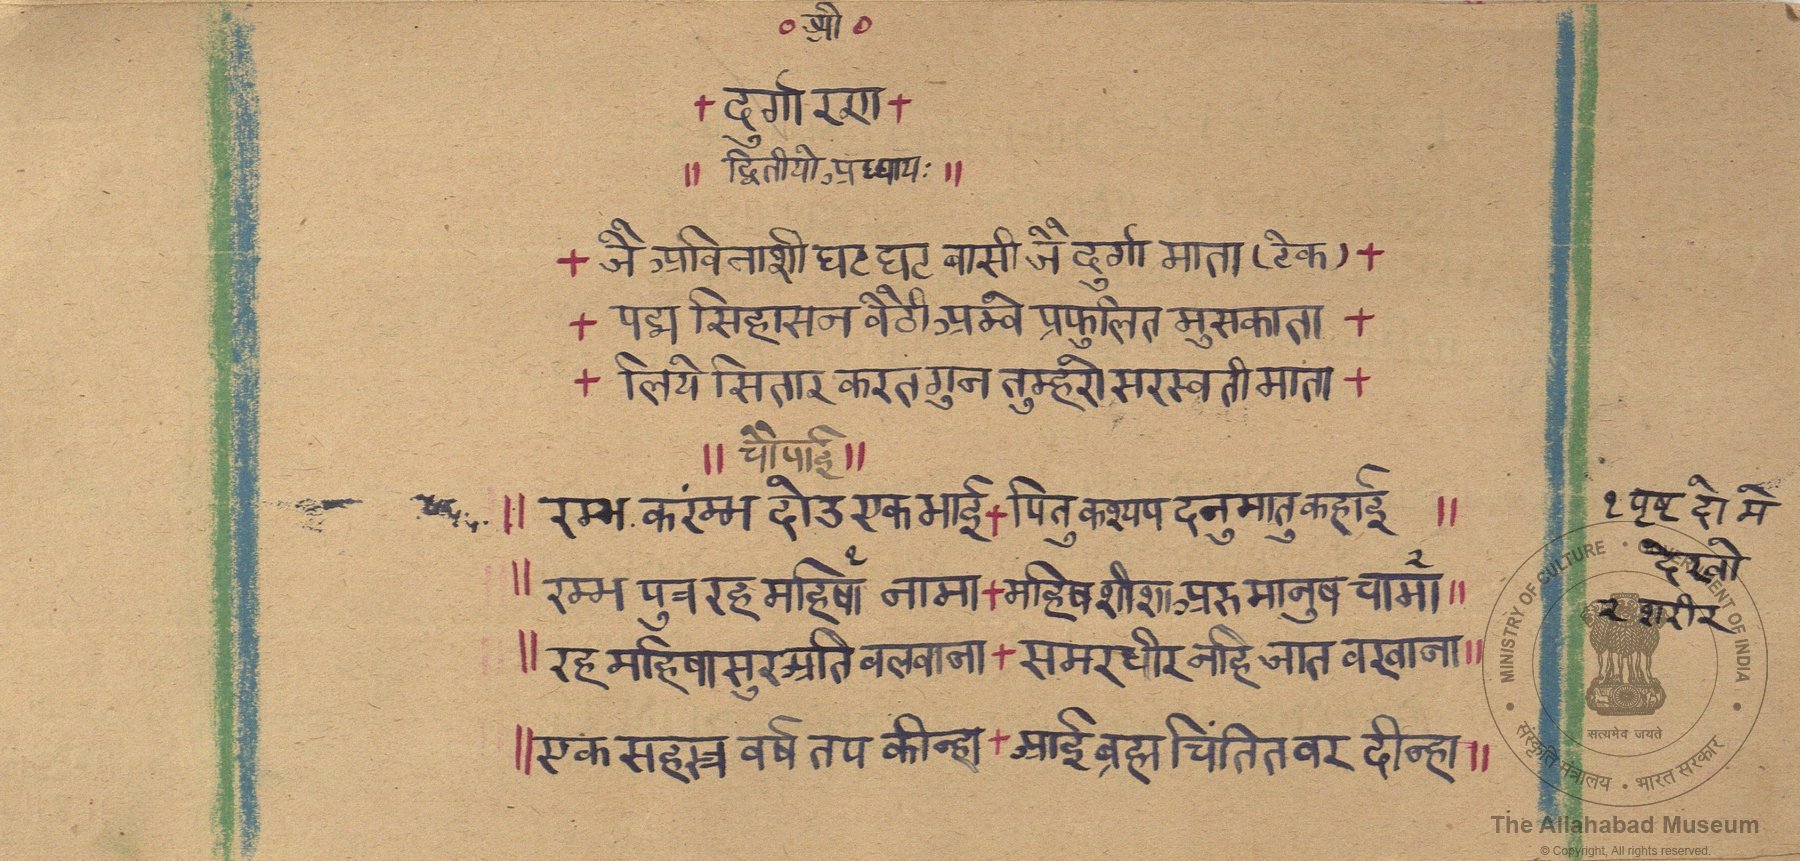 ० श्री ०
+ दुर्गा रण +
॥ द्वितीयो अध्यायः ॥
+ जै अविनाशी घट घट बासी जै दुर्गा माता (टेक) +
+ पद्म सिहासन वैठी अम्वे प्रफुलित मुसकाता +
+ लिये सितार करत गुन तुम्हरो सरस्वती माता +
॥ चौपाई ॥
॥ रम्भ करंम्भ दोउ एक भाई + पितु कश्यप दनु मातु कहाई ॥
॥ रम्भ पुत्र रह महिषाँ१ नामा + महिष शीश अरु मानुष चामाँ२ ॥
॥ रह महिषासुर अति वलवाना + समरधीर नहि जात वखाना ॥
॥ एक सहस्त्र वर्ष तप कीन्हा + आई ब्रह्म चिंतित वर दीन्हा ॥
१ पृष्ट दो मे
देखो
२ शरीर
MINISTRY OF CULTURE • GOVERNMENT OF INDIA
सत्यमेव जयते
संस्कृति मंत्रालय • भारत सरकार
The Allahabad Museum
© Copyright, All rights reserved.